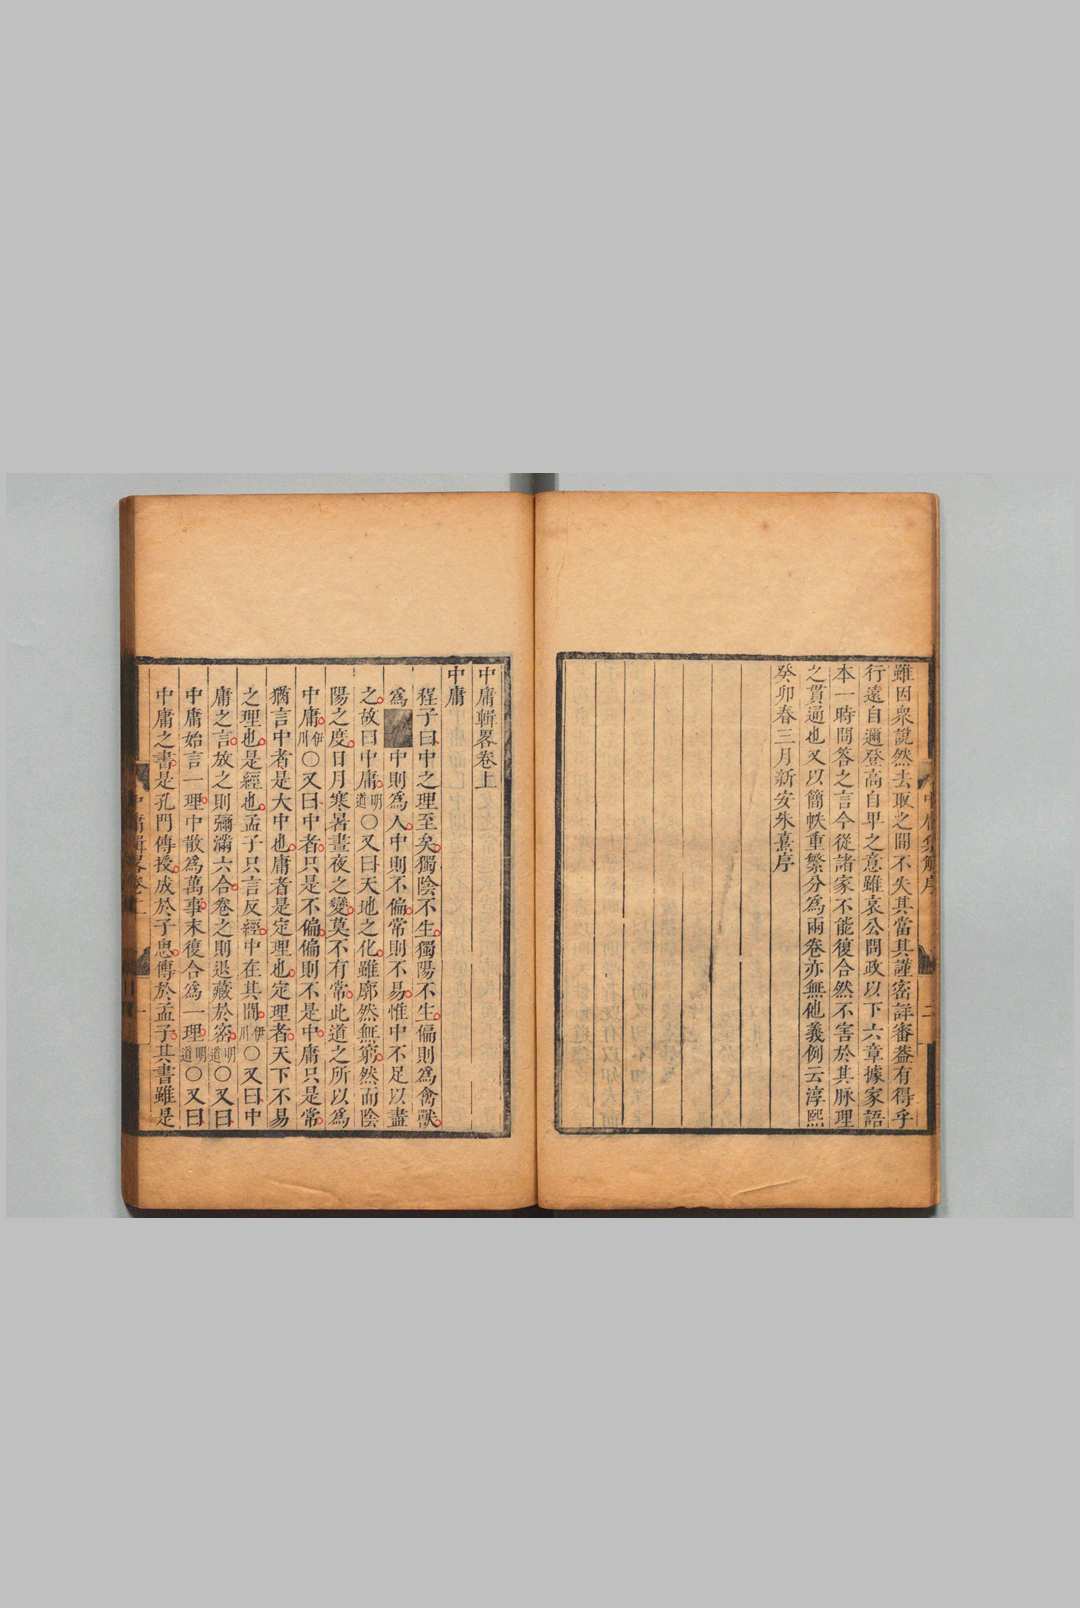 雖因衆說然去取之間不失其當其謹密詳審葢有得乎
行遠自邇登高自卑之意雖哀公問政以下六章據家語
本一時問答之言今從諸家不能復合然不害於其脉理
之貫通也又以簡帙重繁分為兩卷亦無他義例云淳熙
癸卯春三月新安朱熹序
中庸輯畧卷上
中庸
程子曰中之理至矣獨陰不生獨陽不生偏則為禽獸
為 中則為人中則不偏常則不易惟中不足以盡
之故曰中庸明道○又曰天地之化雖廓然無窮然而陰
陽之度日月寒暑晝夜之變莫不有常此道之所以為
中庸伊川○又曰中者只是不偏偏則不是中庸只是常
猶言中者是大中也庸者是定理也定理者天下不易
之理也是經也孟子只言反經中在其間伊川○又曰中
庸之言放之則彌滿六合卷之則退藏於密明道○又曰
中庸始言一理中散為萬事末復合為一理明道○又曰
中庸之書是孔門傳授成於子思傳於孟子其書雖是